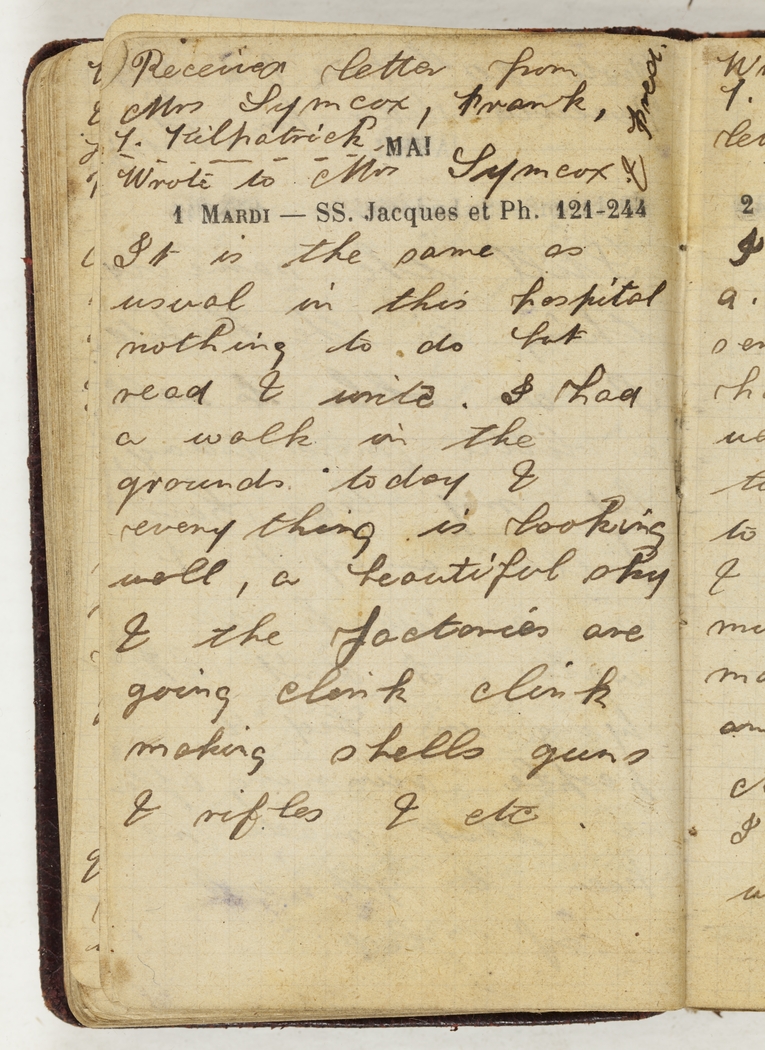 Received letter from
Mrs Symcox, Frank,
T. Kilpatrick
MAI
Wrote to Mrs Symcox & Fred.
1 MARDI — SS. Jacques et Ph. 121-244
It is the same as
usual in this hospital
nothing to do but
read & write. I had
a walk in the
grounds today &
everything is looking
well, a beautiful sky
& the factories are
going clink clink
making shells guns
& rifles & etc.
2